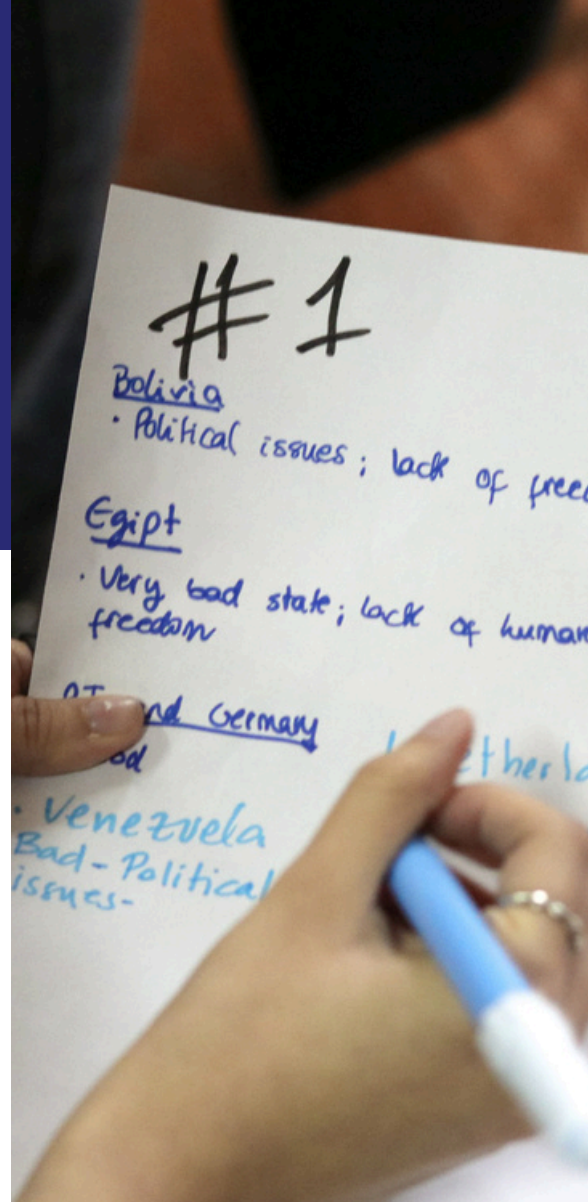 #1
Bolivia
· Political issues; lack of
Egipt
· Very bad state; lack of human
freedom
Germany
· Venezuela
Bad - Political
issues-